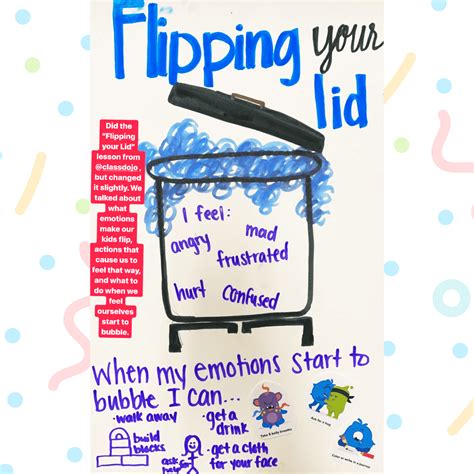 Flipping your
lid
Did the
"Flipping
your Lid"
lesson from
@classdojo, but
changed it
slightly. We
talked about
what
emotions
make our
kids flip,
actions that
cause us to
feel that way,
and what to
do when we
feel
ourselves
start to
bubble.
I feel:
angry mad
frustrated
hurt confused
When my emotions start to
bubble I can...
• walk away
• get a
drink
build
blocks
ask for
help
• get a cloth
for your face
Take 5 belly breaths
Ask for a hug
Color or write in a journal